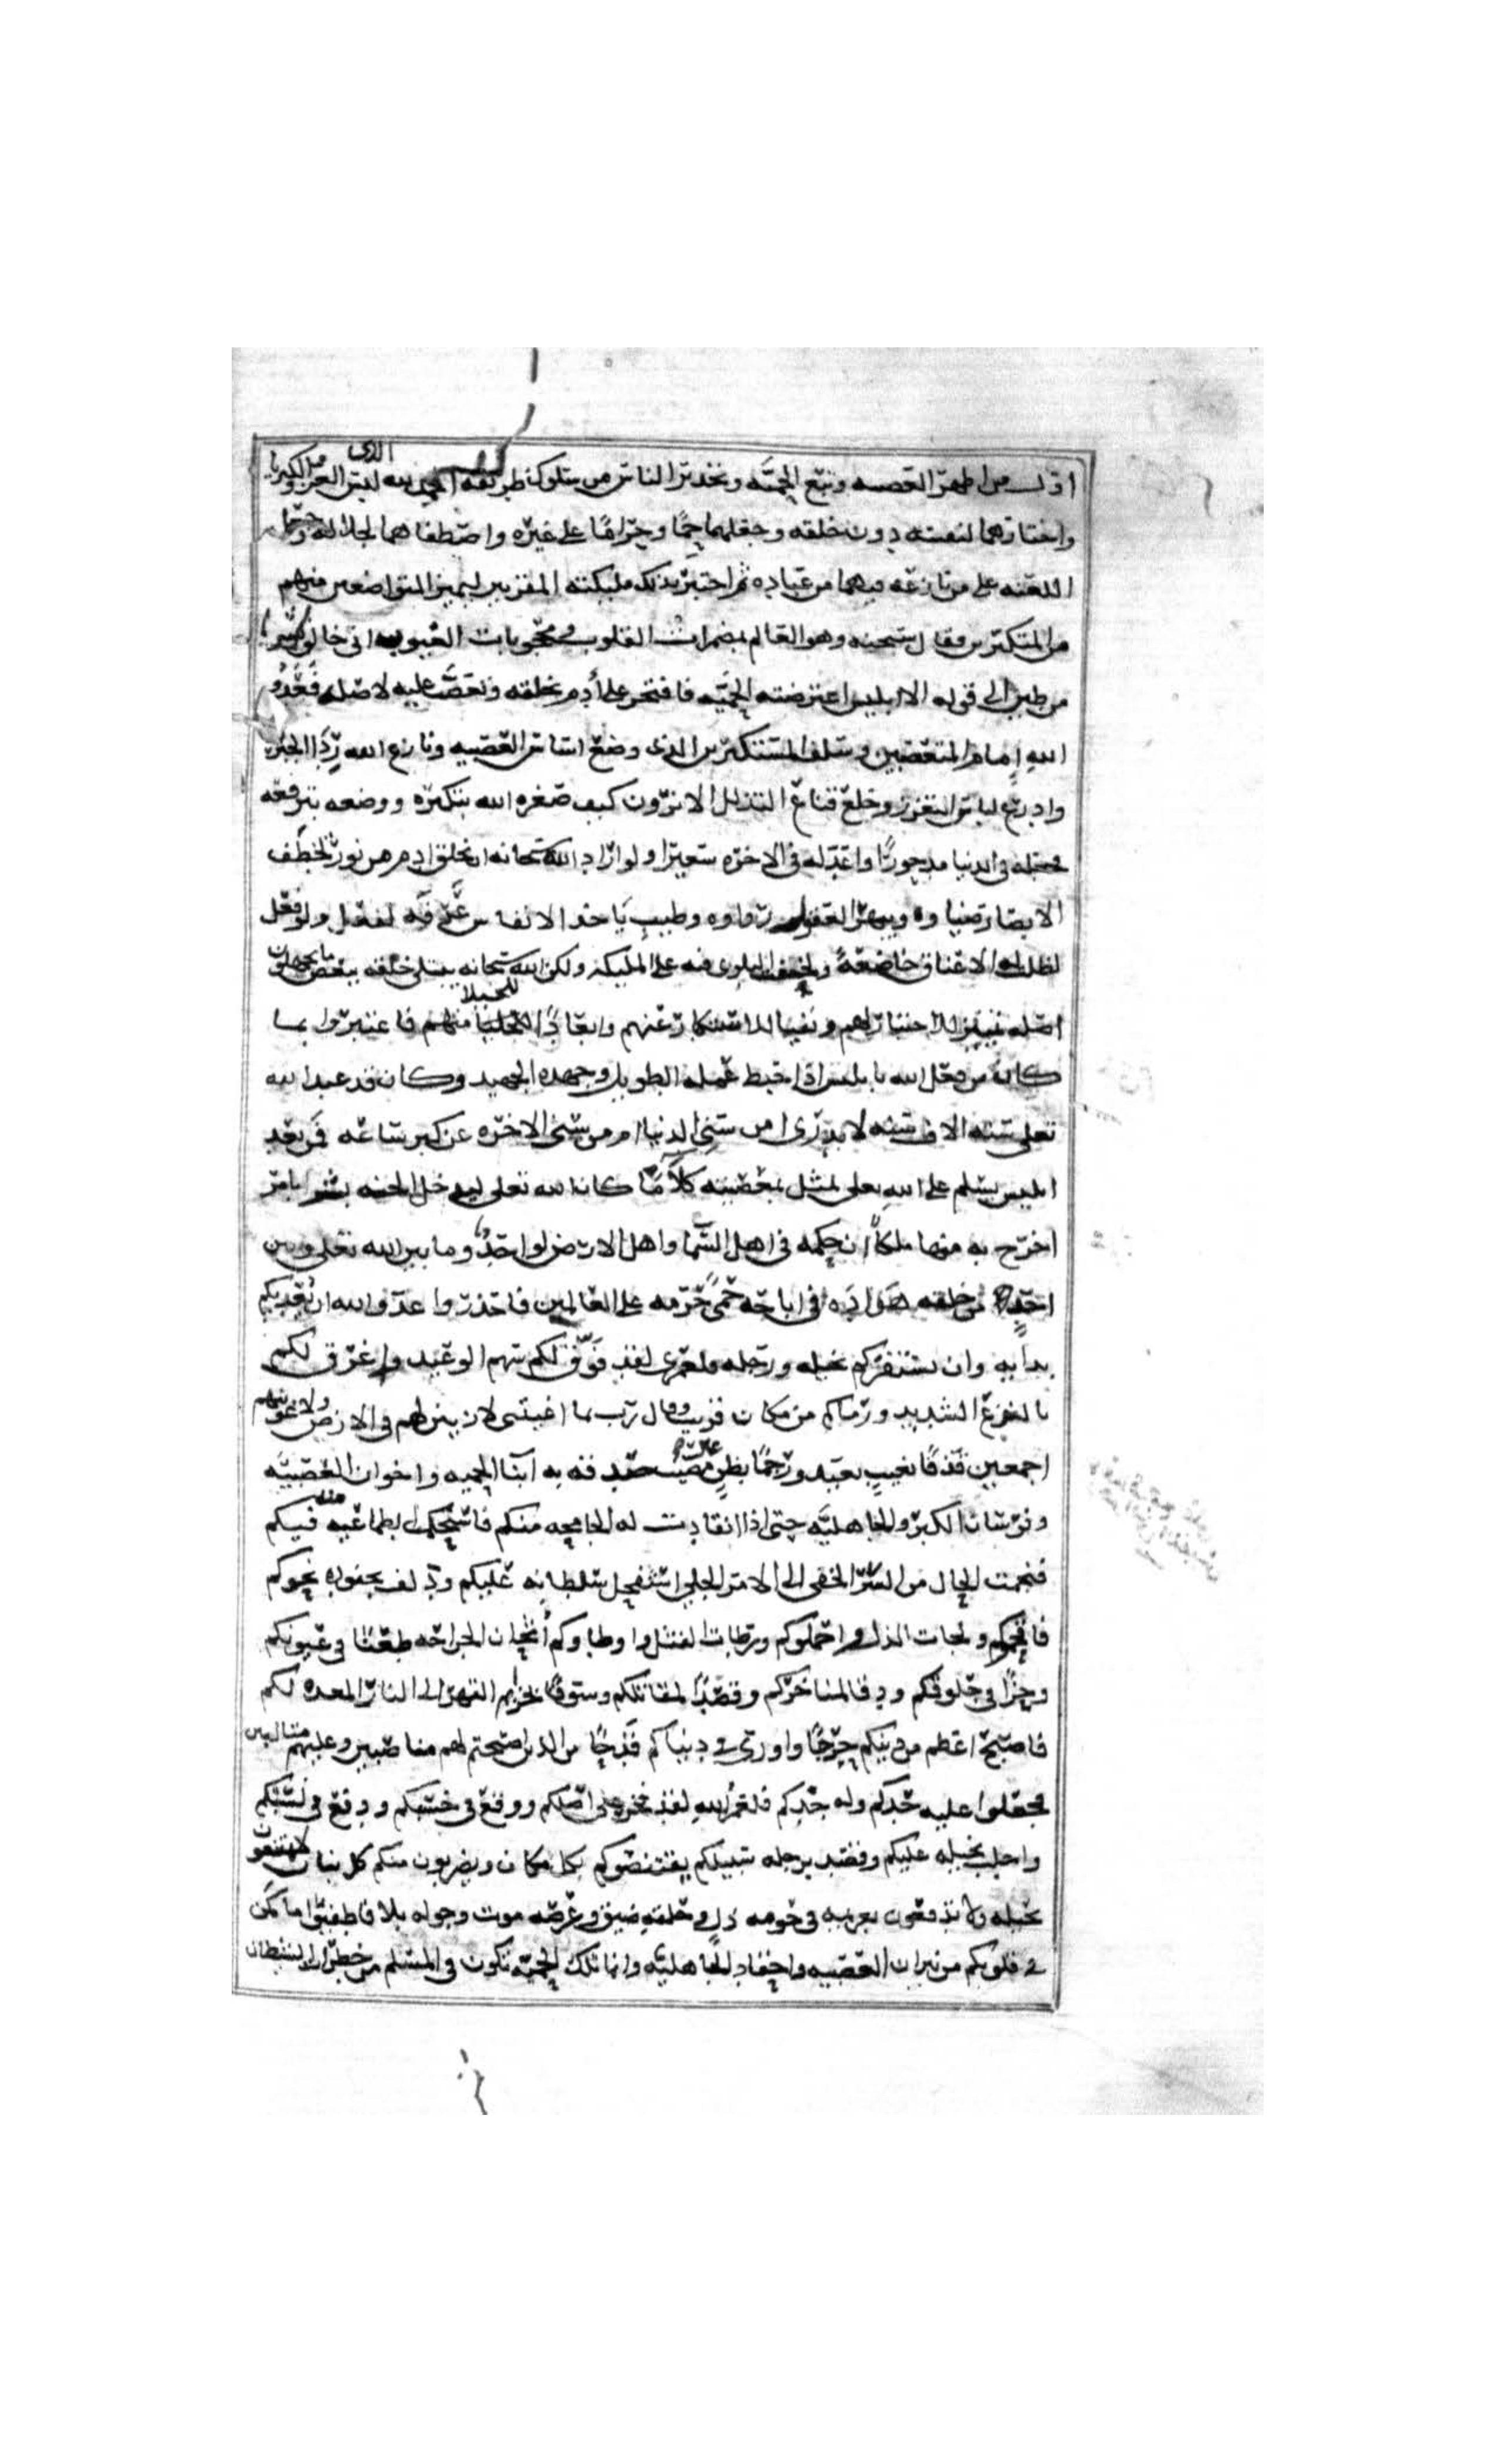 اول من اظهر العصبيه وتبع الحميَّه وتحذير الناس من سلوك طريقته الحمد لله الذي لبس العز والكبرياء
واختارهما لنفسه دون خلقه وجعلهما حمًا وحرامًا على غيره واصطفاهما لجلاله وجعل
اللعنه على من نازعه فيهما من عباده ثم اختبر بذلك مليكته المقربين ليميز المتواضعين منهم
من المتكبرين فقال سبحنه وهو العالم بمضمرات القلوب ومحجوبات الغيوب اني خالق بشرا
من طين الى قوله الا ابليس اعترضته الحميَّه فافتخر على أدم بخلقه وتعصَّب عليه لاصله فَعَدُوُّ
اللهِ إمام المتعصبين وسلف المستكبرين الذى وضع اساس العصبيه ونازع الله رِدَا الجبريه
وادرع لباس التعزز وخلع قناع التذلل الا ترون كيف صغره الله بتكبره ووضعه بترفعه
فجعله فى الدنيا مدحورًا واعد له فى الاخره سعيرا ولو اراد الله سبحانه ان يخلق ادم من نور يخطف
الابصار ضياوه ويبهر العقول رواوه وطيب يَاخذ الانفاس عَرفه لفعل ولو فعل
لظلت له الاعناق خاضعةً ولخفت البلوى فيه على المليكه ولكن الله سبحانه يبتلى خلقه ببعض ما يجهلون
اصله تمييزا بالاختبار لهم ونفيا للاستكبار عنهم وابعادًا للخيلا منهم فاعتبروا بما
كان من فعل الله بابليس اذا حبط عمله الطويل وجهده الجهيد وكان قد عبد الله
تعلى سته الاف سنه لا يدرى امن سنى الدنيا ام من سنى الاخره عن كبر ساعه فمن بعد
ابليس يسلم على الله تعلى بمثل معصيته كلاَّ ما كان الله تعلى ليدخل الجنه بشرا بامر
اخرج به منها ملكاً ان حكمه فى اهل السما واهل الارض لواحدٌ وما بين الله تعلى وبين
احدٍ من خلقه هَوادَه فى اباحه حمًى حرمه على العالمين فاحذروا عدو الله ان يُعْديكم
بدايه وان يستفزكم بخيله ورجله فلعمرى لقد فَوَّق لكم سهم الوعيد واغرق لكم
بالنزع الشديد ورماكم من مكان قريب وقال رب بما اغويتنى لازينن لهم فى الارض ولاغوينهم
اجمعين قَذفًا بغيبٍ بعيد ورجمًا بظنٍ غير مصيب صدقه به ابنَا الحميه واخوان العصبيَّه
وفرسان الكبر والجاهليَّه حتى اذا انقادت له الجامحه منكم فاستحكمت الطماعيه منه فيكم
فنجمت الحال من السّر الخفى الى الامر الجلى استفحل سلطانه عليكم ودلف بجنوده نحوكم
فاقحموكم ولجات الذل واحلوكم ورطات القتل واوطاوكم اثخان الجراحه طعنًا فى عيونكم
وحزًا فى حلوقكم ودقا لمناخركم وقصدًا لمقاتلكم وسوقًا بخزايم القهر الى النار المعده لكم
فاصبح اعظم من دينكم حرجًا واورى فى دنياكم قَدحًا من الذين اصبحتم لهم مناصبين وعليهم متالبين
فجعلوا عليه حدكم وله جدكم فلعمرُ اللهِ لقد فخر على اصلكم ووقع فى حسبكم ودفع فى نسبكم
واجلب بخيله عليكم وقصد برجله سبيلكم يقتنصوكم بكل مكان ويضربون منكم كل بنان لا تمتنعون
بحيله ولا تدفعون بعزيمه فى حومه ذل وحلقه ضيق وعرصه موت وجوله بلا فاطفئوا ما كمن
فى قلوبكم من نيران العصبيه واحقاد الجاهليَّه وانما تلك الحميَّه تكون فى المسلم من خطرات الشيطان